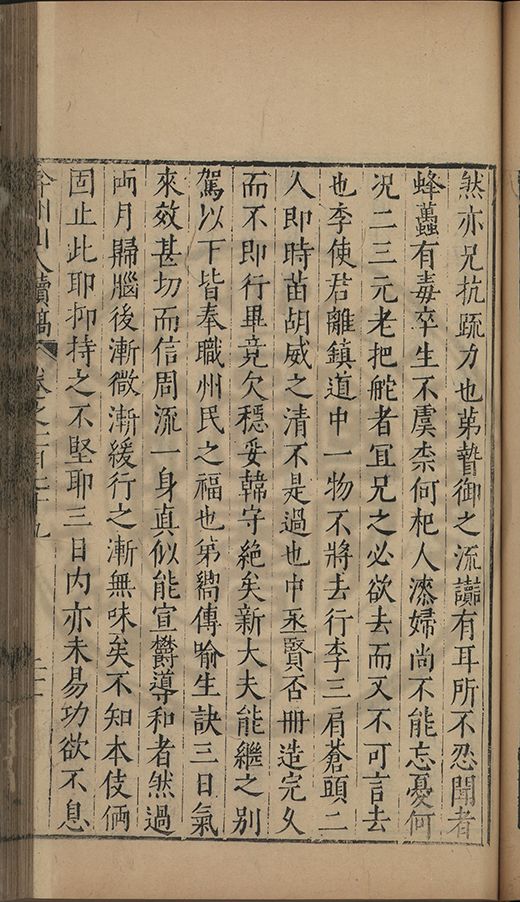 然亦兄抗疏力也苐暬御之流讟有耳所不忍聞者
蜂蠆有毒卒生不虞柰何杞人漆婦尚不能忘憂何
况二三元老把舵者冝兄之必欲去而又不可言去
也李使君離鎮道中一物不將去行李三肩蒼頭二
人即時苗胡威之清不是過也中丞賢否冊造完久
而不即行畢竟欠穩妥韓守絶矣新大夫能繼之别
駕以下皆奉職州民之福也苐嚮傳喻生訣三日氣
來效甚切而信周流一身真似能宣欝導和者然過
兩月歸腦後漸微漸緩行之漸無味矣不知本伎倆
固止此耶抑持之不堅耶三日内亦未易功欲不息
弇州山人續稿 卷之一百